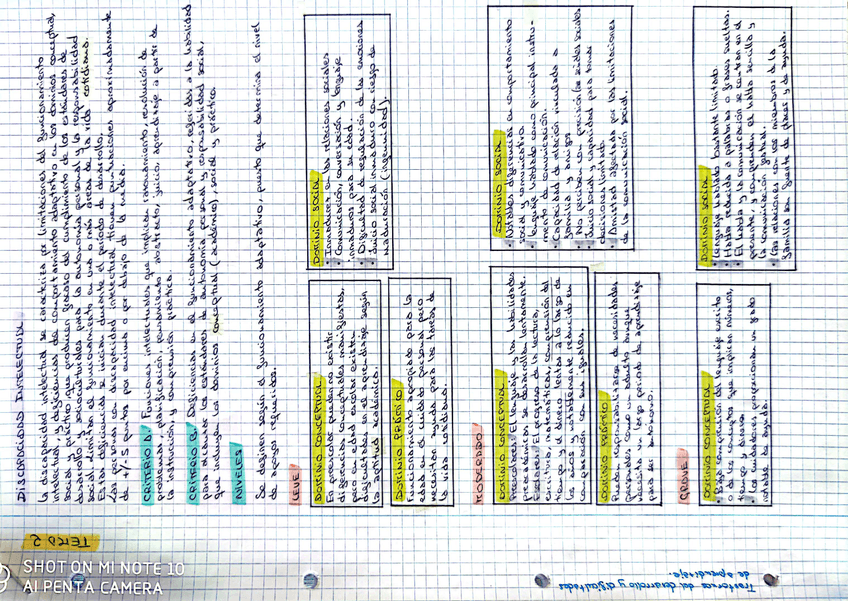 Trastornos del desarrollo y dificultades
de aprendizaje.
TEMA 2
DISCAPACIDAD INTELECTUAL
La discapacidad intelectual se caracteriza por limitaciones del funcionamiento
intelectual y deficiencias de comportamiento adaptativo en los dominios conceptual,
social y práctico, que producen fracaso del cumplimiento de los estándares de
desarrollo y socioculturales para la autonomía personal y la responsabilidad
social. Limitan el funcionamiento en una o más áreas de la vida cotidiana.
Estas deficiencias se inician durante el periodo de desarrollo.
Las personas con discapacidad intelectual tienen puntuaciones aproximadamente
de +/- 5 puntos por encima o por debajo de la media.
CRITERIO A. Funciones intelectuales que implican razonamiento, resolución de
problemas, planificación, pensamiento abstracto, juicio, aprendizaje a partir de
la instrucción, y comprensión práctica.
CRITERIO B. Deficiencias en el funcionamiento adaptativo, referidas a la habilidad
para alcanzar los estándares de autonomía personal y responsabilidad social,
que incluyen los dominios conceptual (académico), social y práctico.
NIVELES
Se definen según el funcionamiento adaptativo, puesto que determina el nivel
de apoyos requeridos.
LEVE
DOMINIO CONCEPTUAL
En preescolar pueden no existir
diferencias conceptuales manifiestas,
pero en edad escolar existen
dificultades en el aprendizaje según
la aptitud académica.
DOMINIO SOCIAL
• Inmadurez en las relaciones sociales
• Comunicación, conversación y lenguaje
inmaduros para su edad.
• Dificultad de regulación de las emociones
• Juicio social inmaduro con riesgo de
manipulación (ingenuidad).
DOMINIO PRÁCTICO
Funcionamiento apropiado para la
edad en el cuidado personal pero
necesitan ayuda para las tareas de
la vida cotidiana.
MODERADO
DOMINIO CONCEPTUAL
Preescolares: El lenguaje y las habilidades
preacadémicas se desarrollan lentamente.
Escolares: El progreso de la lectura,
escritura, matemáticas, comprensión del
tiempo y el dinero lentas a lo largo de
los años y notablemente reducido en
comparación con sus iguales.
DOMINIO SOCIAL
• Notables diferencias en comportamiento
social y comunicativo.
• Lenguaje hablado como principal instru-
mento de comunicación.
• Capacidad de relación vinculada a
familia y amigos
• No perciben con precisión las señales sociales
• Juicio social y capacidad para tomar
decisiones limitado.
• Amistad afectada por las limitaciones
de la comunicación social.
DOMINIO PRÁCTICO
Puede responsabilizarse de necesidades
personales como un adulto aunque
necesita un largo periodo de aprendizaje
para ser autónomo.
GRAVE
DOMINIO CONCEPTUAL
• Baja comprensión del lenguaje escrito
o de los conceptos que implican números,
tiempo y dinero.
• Los cuidadores proporcionan un grado
notable de ayuda.
DOMINIO SOCIAL
• Lenguaje hablado bastante limitado.
• Habla reducida a palabras o frases sueltas.
• El habla y la comunicación se centran en el
presente, y comprenden el habla sencilla y
la comunicación gestual.
• Las relaciones con los miembros de la
familia son fuente de placer y de ayuda.
SHOT ON MI NOTE 10
AI PENTA CAMERA